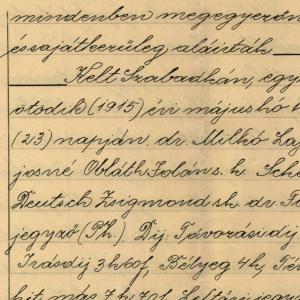 mindenben megegyezőn
és sajátkezűleg aláírták
Kelt Szabadkán, egy
ötödik (1915) évi május hó
(23) napján. dr. Milkó Laj
josné Obláth Jolán s. k. Sch
Deutsch Zsigmond sk. dr.
jegyző (P.h.). Díj: Távorási díj
Irásdij 3 k 60 f, Bélyeg 4 k,
hit. más 7 k 70 f.